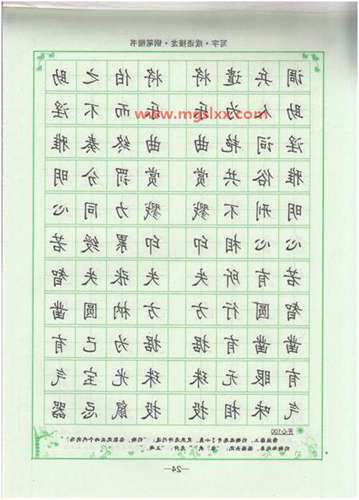 写字·成语接龙·钢笔楷书
调兵遣将将伯之助
助人为乐乐而不淫
www.mgslxx.com
淫词艳曲曲终奏雅
雅俗共赏赏罚分明
明刑不戮戮力同心
心心相印印累绶若
若有所失失张失智
智圆行方方枘圆凿
凿凿有据据为己有
有眼无珠珠光宝气
气味相投投鼠忌器
开心100
—24—